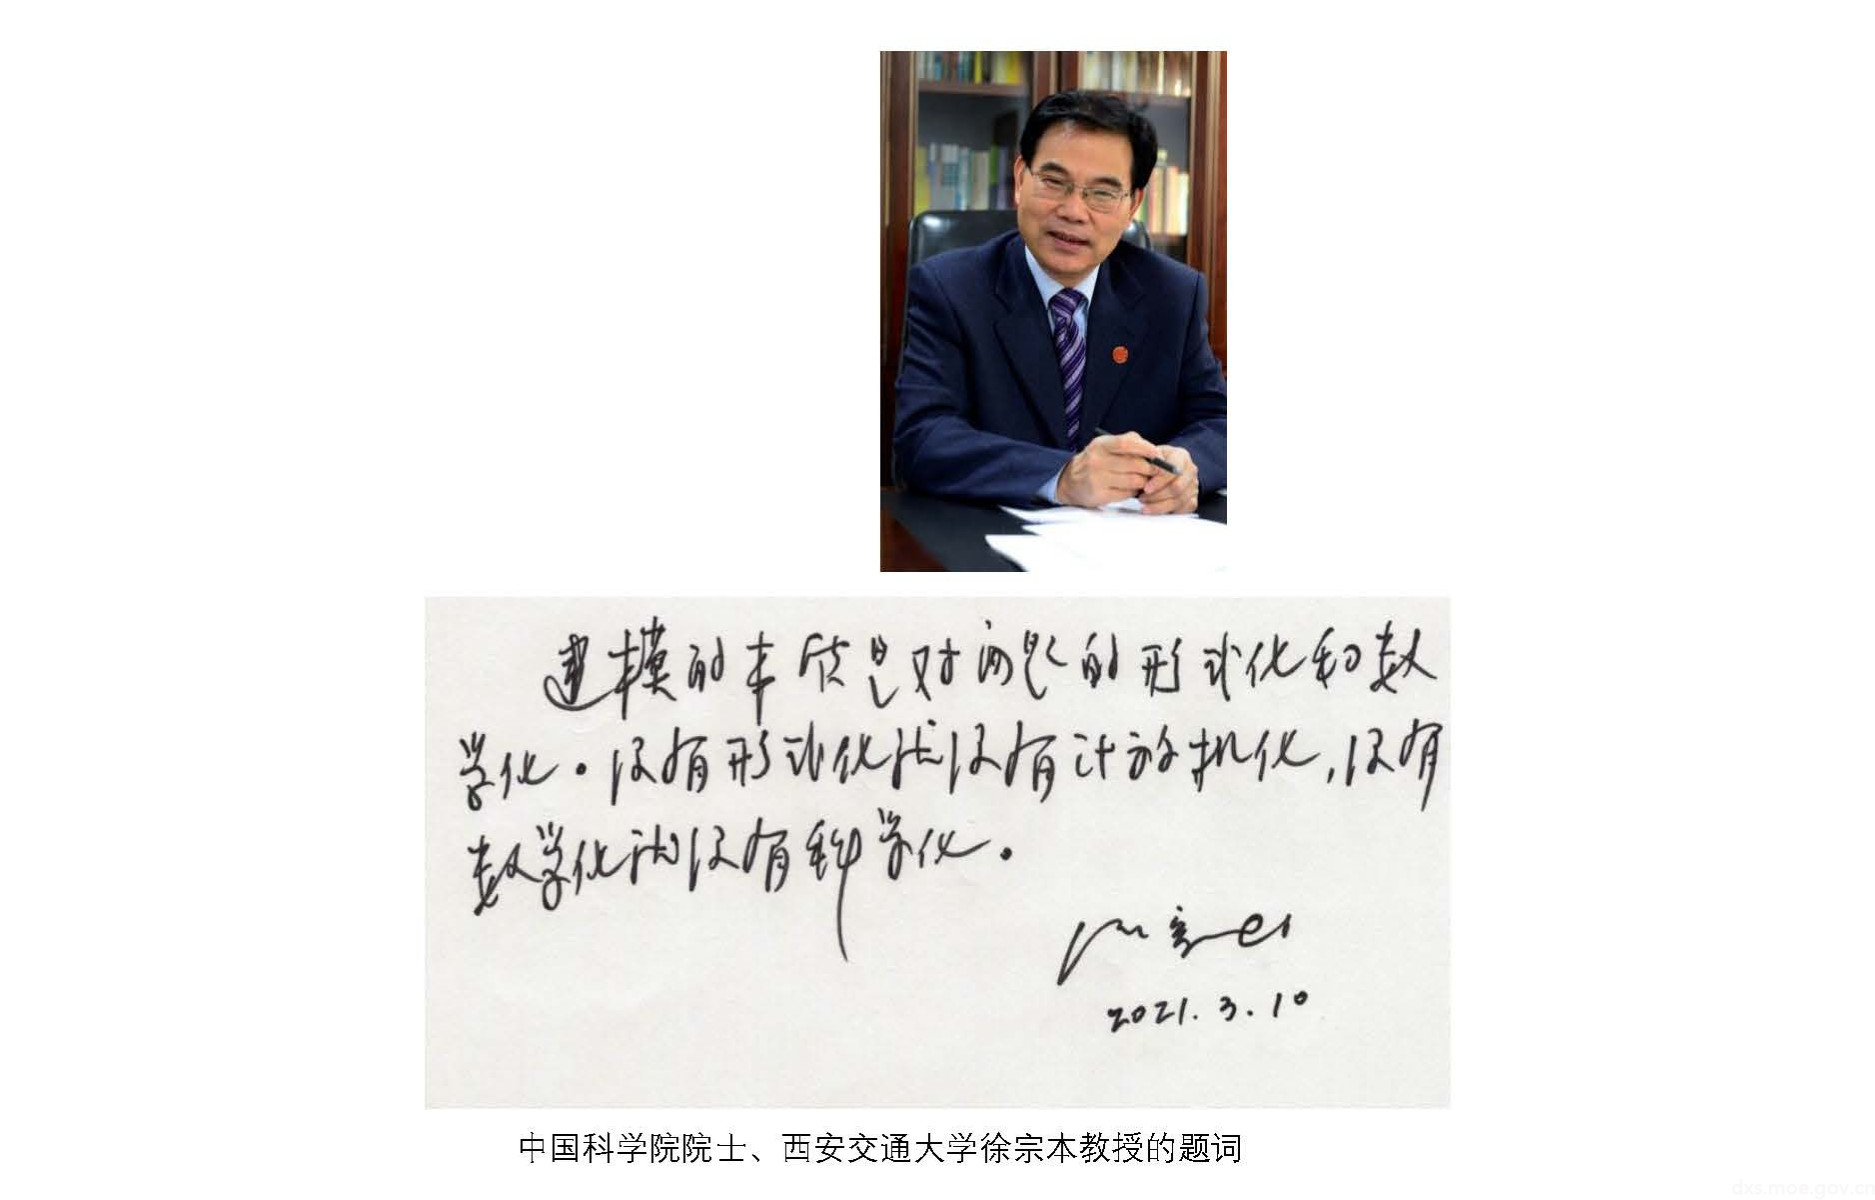 建模的本质是对问题的形式化和数
学化。没有形式化就没有计算机化,没有
数学化就没有科学化。
徐宗本
2021.3.10
中国科学院院士、西安交通大学徐宗本教授的题词
dxs.moe.gov.cn